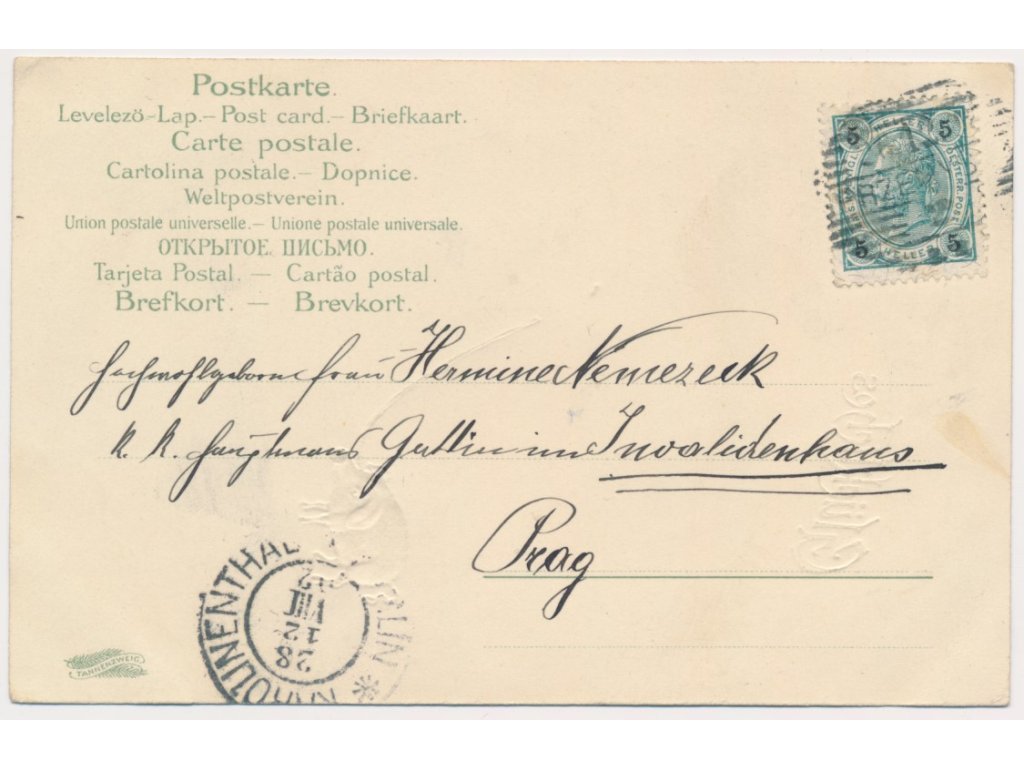 Postkarte.
Levelező-Lap.– Post card.– Briefkaart.
Carte postale.
Cartolina postale.– Dopnice.
Weltpostverein.
Union postale universelle.– Unione postale universale.
ОТКРЫТОЕ ПИСЬМО.
Tarjeta Postal. — Cartão postal.
Brefkort. — Brevkort.
5 5
5 5
OESTERR. POST
HELLER
Hochwohlgeborne Frau Hermine Nemezeck
k. k. Hauptmans Gattin im Invalidenhaus
Prag
KAROLINENTHAL
LIN
28
12
VIII
TANNENZWEIG.